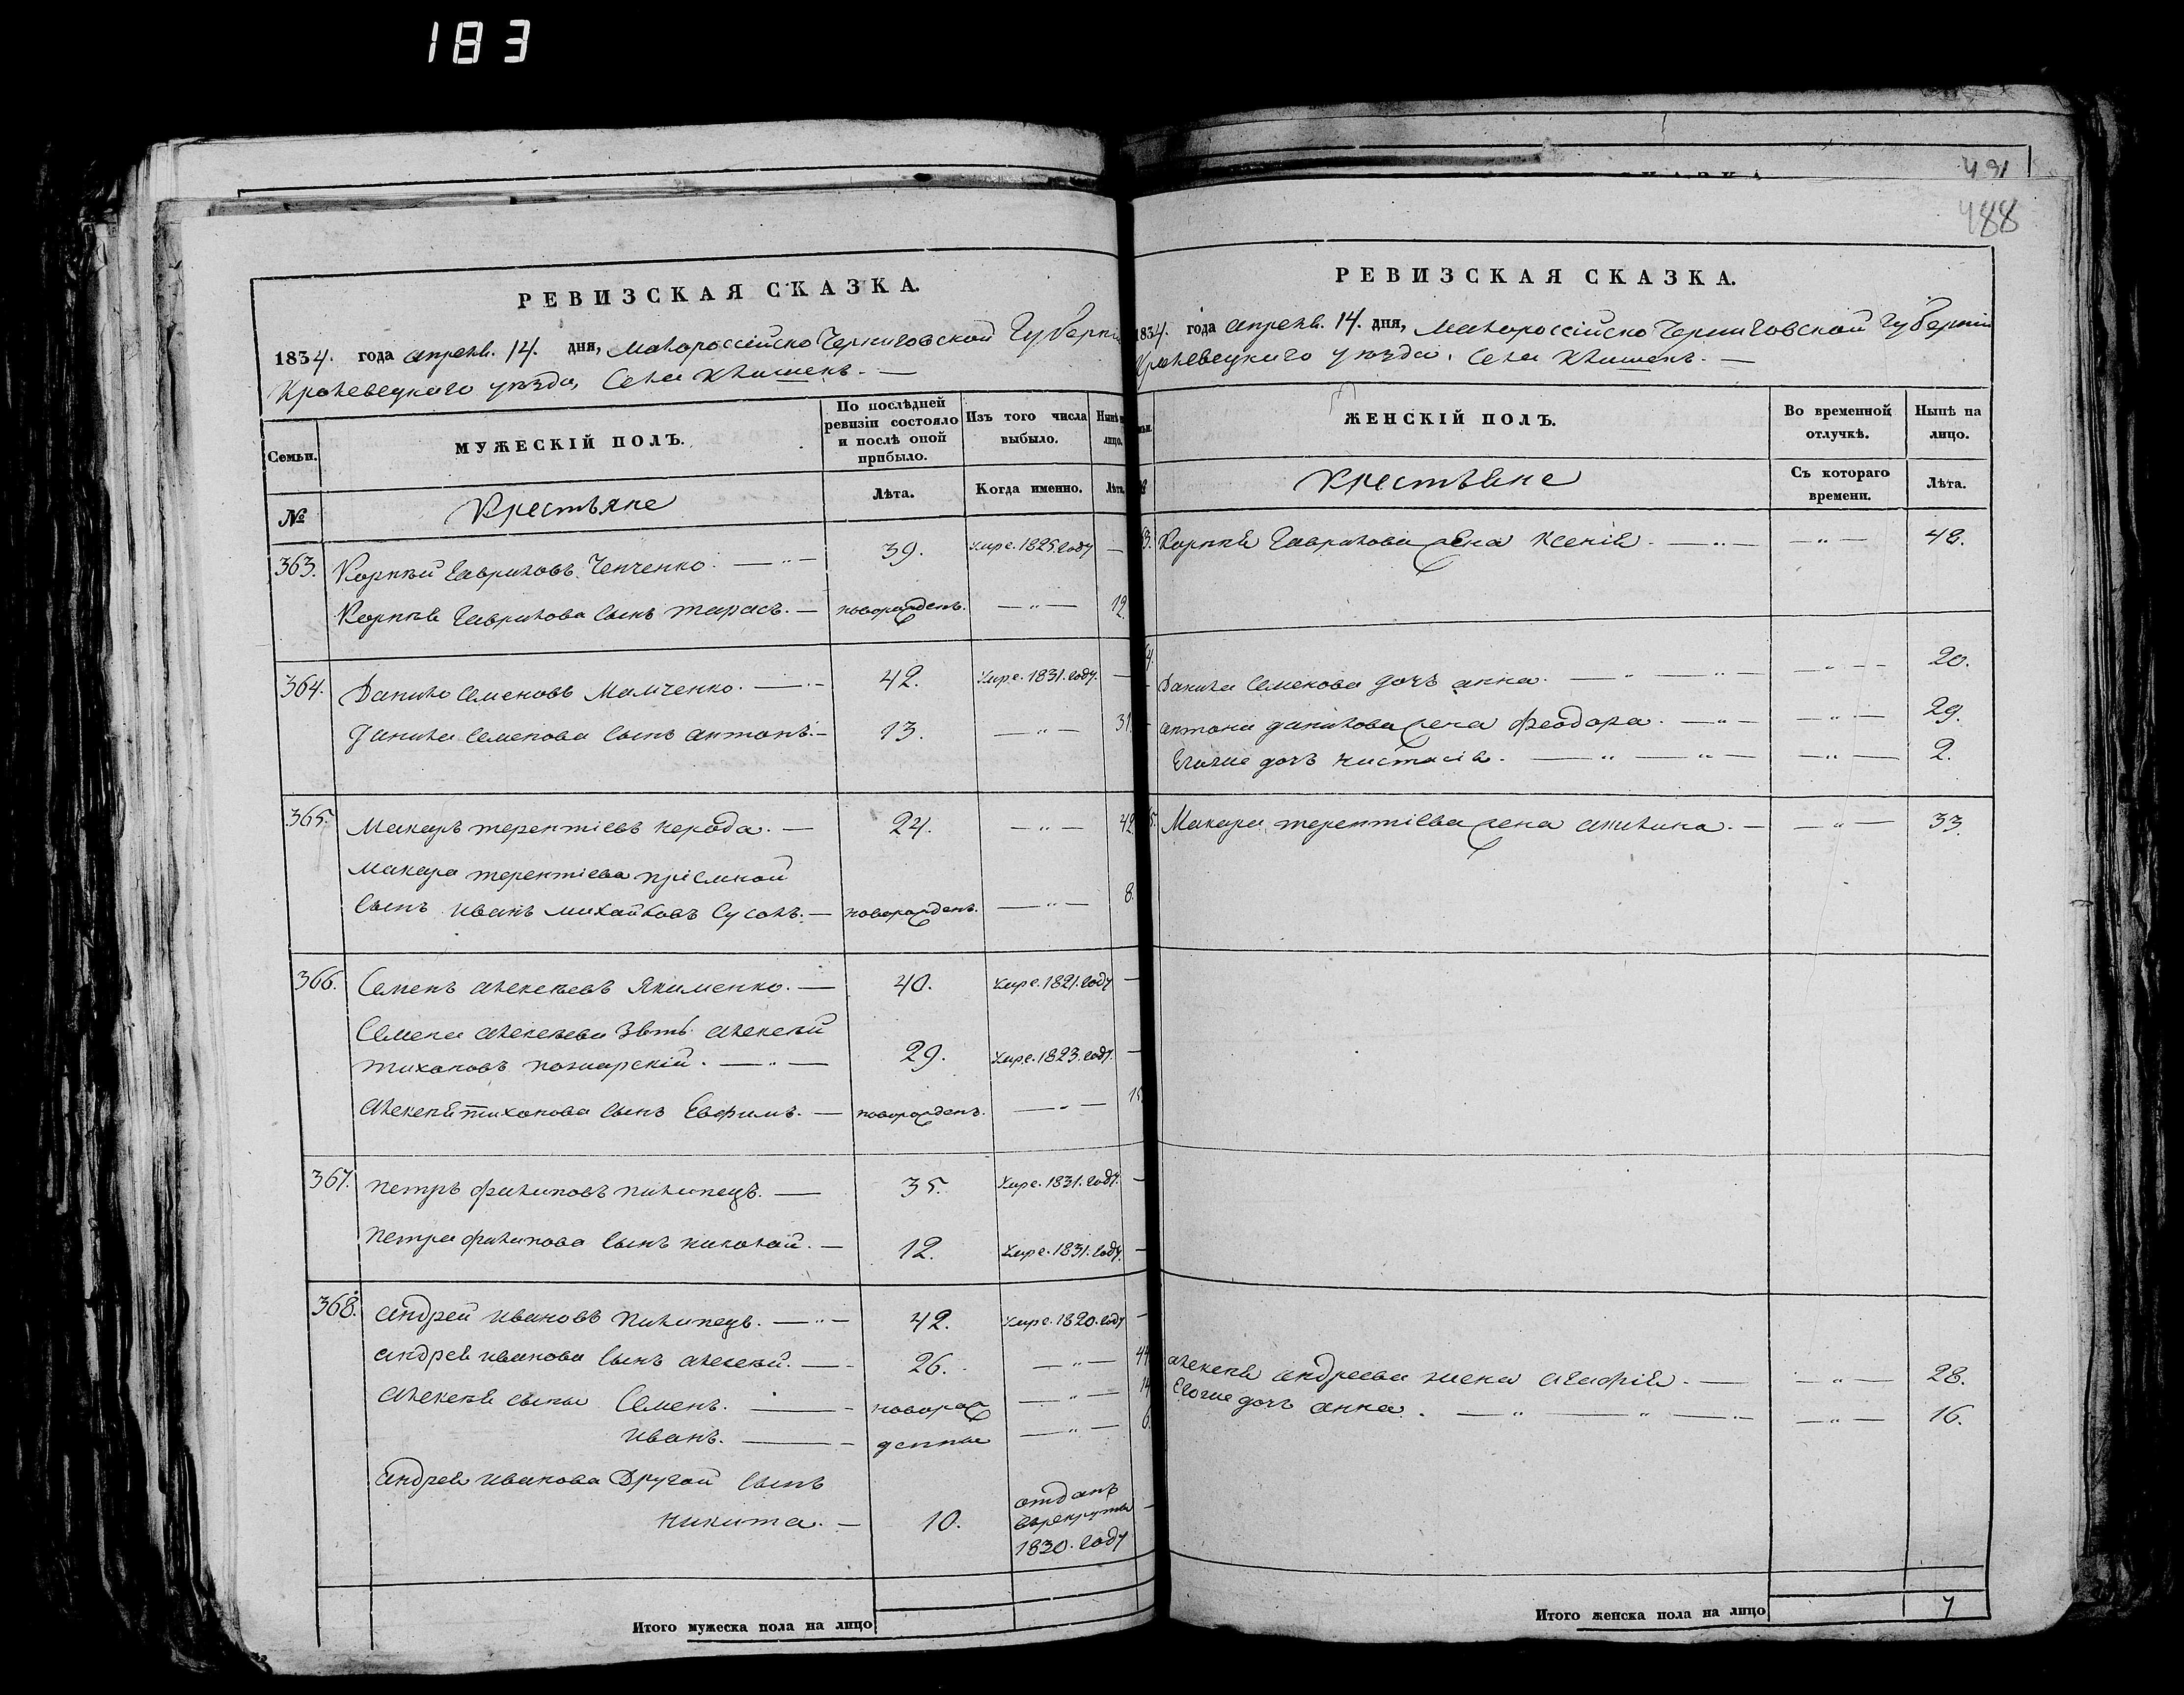 183
431
488
РЕВИЗСКАЯ СКАЗКА.
1834. года апреля. 14. дня, Малороссійско Черниговской Губерніи
Кролевецкого уѣзда, Села Клишекъ. —
Семьи.
МУЖЕСКІЙ ПОЛЪ.
По послѣдней ревизіи состояло и послѣ оной прибыло.
Изъ того числа выбыло.
Нынѣ на лицо.
№
Крестьяне
Лѣта.
Когда именно.
Лѣта.
363. Корнѣй Гавриловъ Чепченко. — 39. умре. 1825. году —
Корнѣя Гаврилова сынъ тарасъ. — новорожденъ. — " — 12.
364. Данило Семеновъ Мамченко. — 42. умре. 1831. году. —
Данила Семенова сынъ антонъ. — 13. — " — 31.
365. Макаръ терентіевъ — 24. — " — 42
Макара терентіева пріемной
сынъ иванъ михайловъ — новорожденъ. — " — 8.
366. Семенъ алексѣевъ Якименко. — 40. умре. 1821. году —
Семена алексѣева зять алексѣй
тихоновъ — " — 29. умре. 1823. году. —
алексѣя тихонова сынъ Евфимъ. — новорожденъ. — " — 15
367. петръ филиповъ пилипецъ. — 35. умре. 1831. году. —
петра филипова сынъ николай. — 12. умре. 1831. году. —
368. андрей ивановъ пилипецъ. — " — 42. умре. 1820. году —
андрея иванова сынъ алексѣй. — 26. — " — 44
алексѣя сыны Семенъ. — новорож — " — 14
иванъ. — денные — " — 6.
андрея иванова Другой сынъ
никита. — 10. отданъ
врекруты
1830. году —
Итого мужеска пола на лицо
РЕВИЗСКАЯ СКАЗКА.
1834. года апреля. 14. дня, Малороссійско Черниговской Губерніи
Кролевецкого уѣзда, Села Клишекъ. —
ЖЕНСКІЙ ПОЛЪ.
Во временной отлучкѣ.
Нынѣ на лицо.
Крестьяне
Съ котораго времени.
Лѣта.
Корнѣя Гаврилова жена Ксенія. — " — — " — 48.
Данила Семенова дочь анна. — " — " — — " — 20.
антона данилова жена феодора. — " — — " — 29.
Егоже дочь настасія. — " — " — — " — 2.
Макара терентіева жена акилина. — — " — 33.
алексѣя андреева жена агафія. — — " — 28.
Егоже дочь анна. — " — " — " — — " — 16.
Итого женска пола на лицо 7